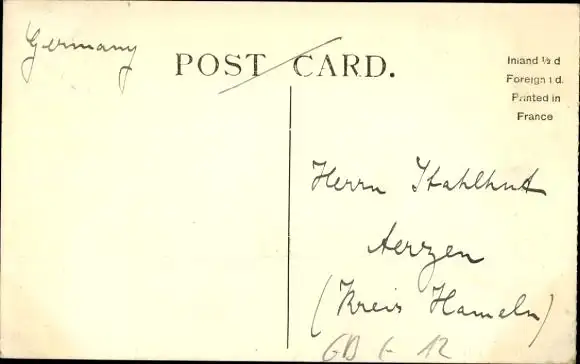 Germany
POST CARD.
Inland ½ d
Foreign 1 d.
Printed in
France
Herrn Stahlhut
Aerzen
(Kreis Hameln)
GB 6-12